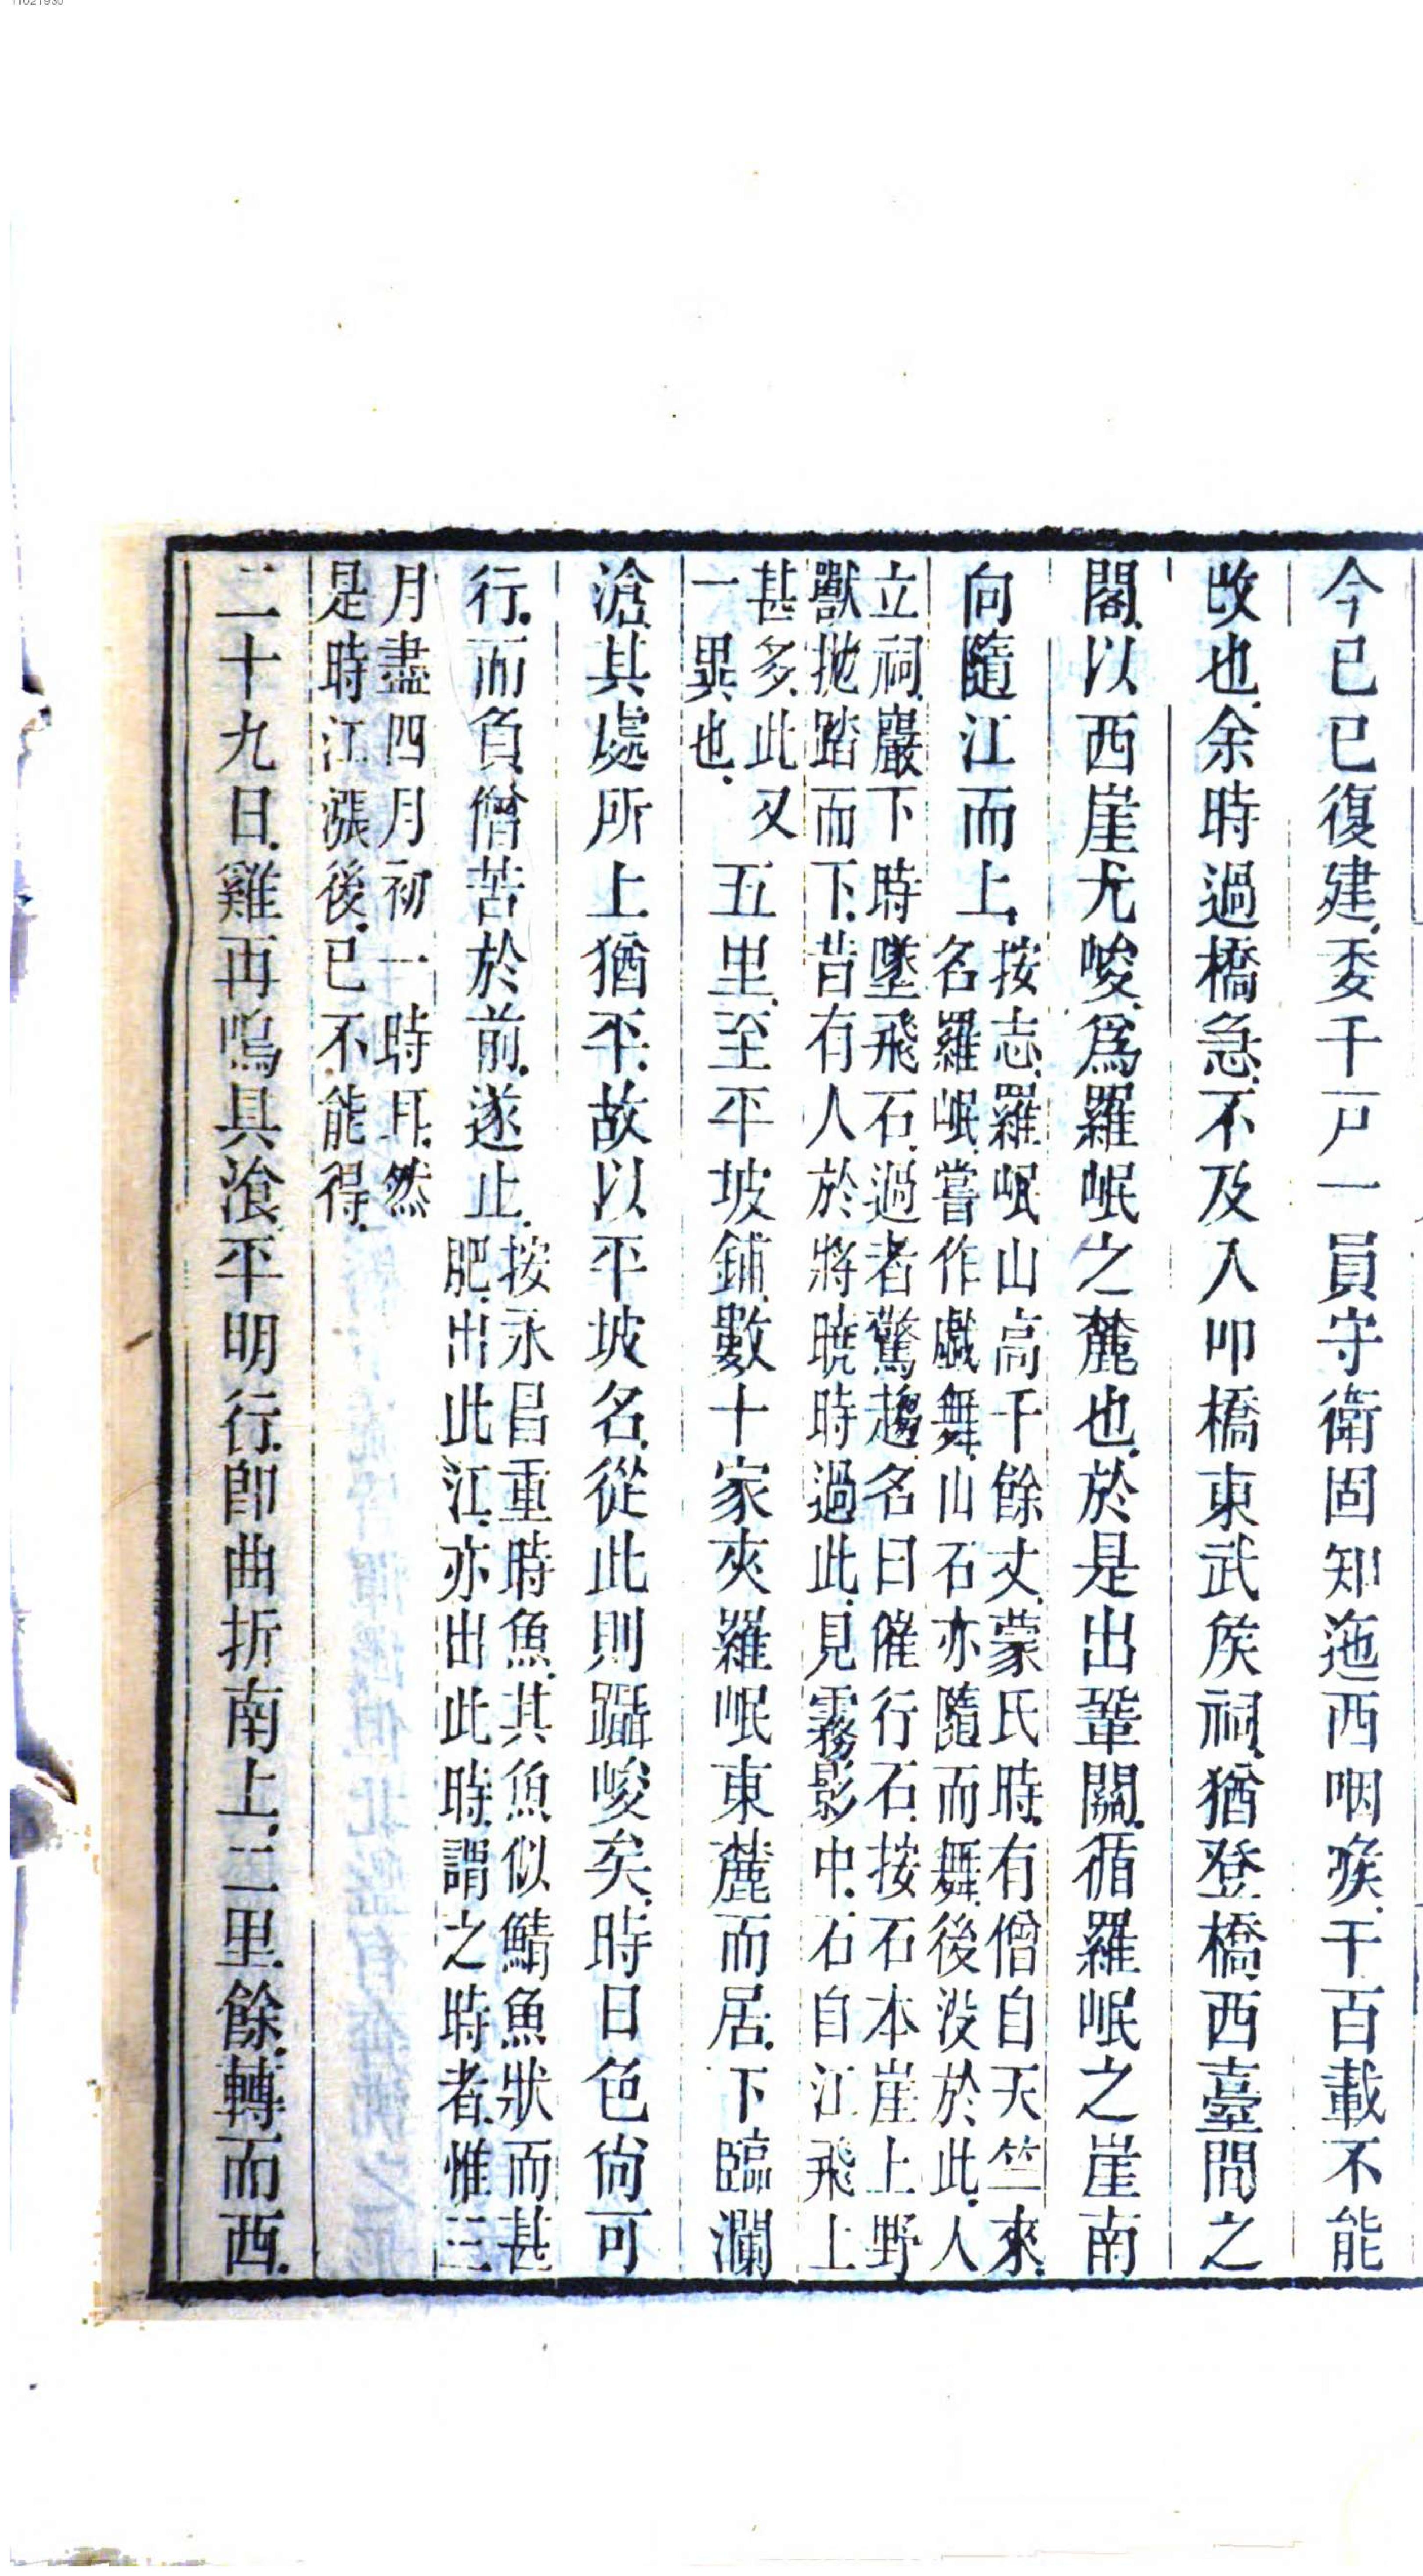 今已已復建委千戸一員守衛固知迤西咽喉千百載不能
改也余時過橋急不及入叩橋東武矦祠猶登橋西臺間之
閣以西崖尤峻爲羅岷之麓也於是出鞏關循羅岷之崖南
向隨江而上
按志羅岷山高千餘丈蒙氏時有僧自天竺來
名羅岷嘗作戲舞山石亦隨而舞後沒於此人
立祠巖下時墜飛石過者驚趨名曰催行石按石本崖上野
獸拋踏而下昔有人於將曉時過此見霧影中石自江飛上
甚多此又
一異也
五里至平坡鋪數十家夾羅岷東麓而居下臨瀾
滄其處所上猶平故以平坡名從此則躡峻矣時日色尙可
行而負僧苦於前遂止
按永昌重時魚其魚似鯖魚狀而甚
肥出此江亦出此時謂之時者惟三
月盡四月初一時耳然
是時江漲後已不能得
二十九日雞再鳴具飡平明行卽曲折南上二里餘轉而西